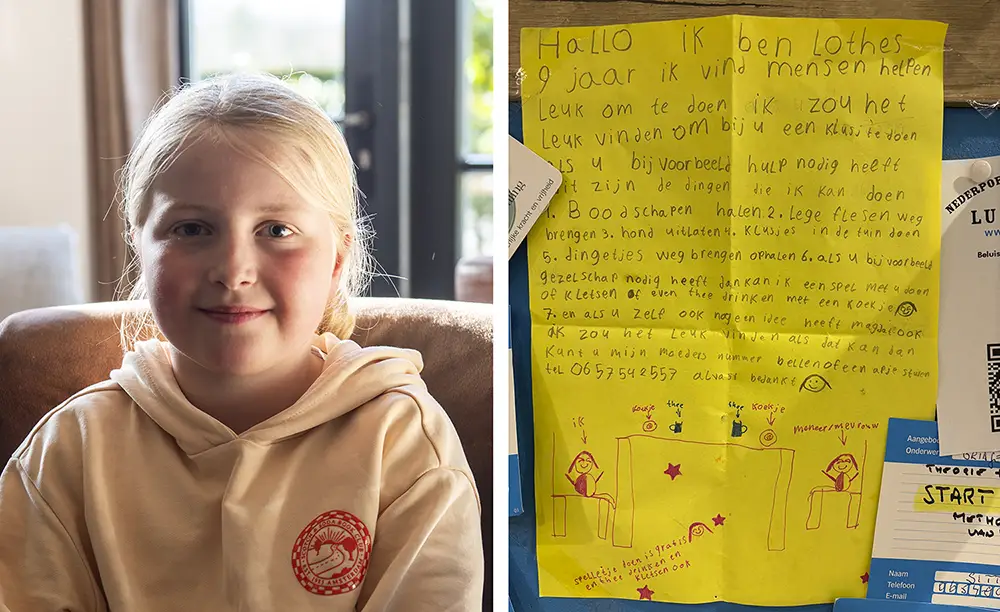 HALLO ik ben Lothes
9 jaar ik vind mensen helpen
Leuk om te doen ik zou het
Leuk vinden om bij u een klusje te doen
als u bij voorbeeld hulp nodig heeft
it zijn de dingen die ik kan doen
1. Boodschapen halen 2. Lege flesen weg
brengen 3. hond uitlaten 4. klusjes in de tuin doen
5. dingetjes weg brengen ophalen 6. als u bij voorbeeld
gezelschap nodig heeft dan kan ik een spel met u doen
of kletsen of even thee drinken met een koekje
7. en als u zelf ook nog een idee heeft mag dat ook
ik zou het leuk vinden als dat kan dan
kunt u mijn moeders nummer bellen of een apje sturen
tel 0657542557 alvast bedankt
koekje thee thee koekje
ik meneer/mevrouw
spelletje doen is gratis
en thee drinken en
kletsen ook
jke kracht en vrijheid
NEDERPO
LU
www.
Beluis
Aangebo
Onderwer
START
Naam
Telefoon
E-mail
AMSTERDAM